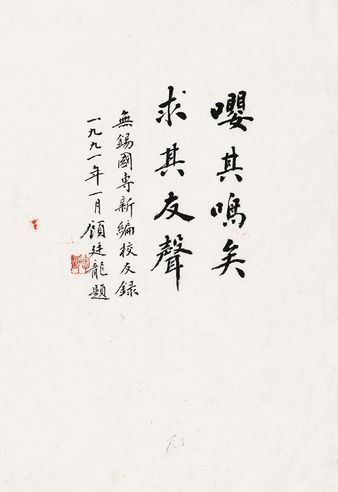 嚶其鳴矣
求其友聲
無錫國專新編校友録
一九九一年一月顧廷龍題